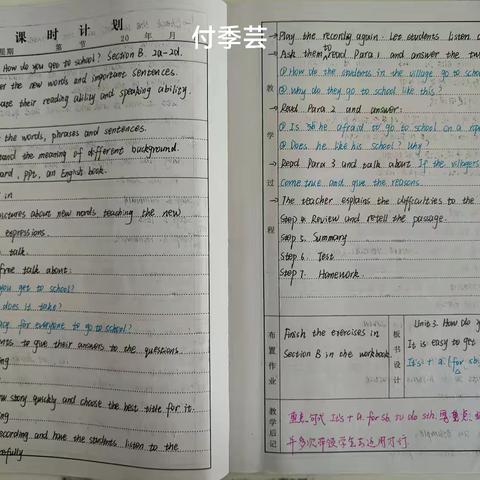 付季芸
课 时 计 划
星期 第 节 20 年 月
How do you get to school? Section B 2a-2d.
er the new words and important sentences.
ate their reading ability and speaking ability.
the words, phrases and sentences.
tand the meaning of different background.
ard, ppt, an English book.
in
pictures about new words, teaching the new
expressions.
talk.
free talk about:
you get to school?
does it take?
easy for everyone to go to school?
nts to give their answers to the questions.
ing
story quickly and choose the best title for it.
ing
recording and have the students listen to the
refully
→Play the recording again. Let students listen
→Ask them to read Para 1 and answer the tw
①How do the students in the village go to scho
②Why do they go to school like this?
→Read Para 2 and answer:
①Is he afraid to go to school on a rop
②Does he like his school? Why?
→Read Para 3 and talk about If the villagers
come true and give the reasons.
→The teacher explains the difficulties to the
Step 4. Review and retell the passage.
Step 5. Summary
Step 6. Test
Step 7. Homework.
教学过程
布置作业
Finish the exercises in
Section B in the workbook.
板书设计
Unit 3. How do y
It is easy to get
It's + a. (for sb.
教学后记
重点句式 It's + a. for sb. to do sth. 是重点,
并多次带领学生去运用才行.